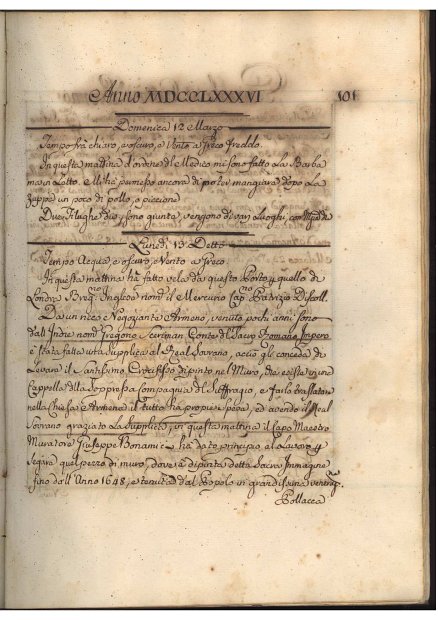 Anno MDCCLXXXVI 101
Domenica 12 Marzo
Tempo frà chiaro, e oscuro, e Vento a Greco freddo.
In questa mattina d'ordine del Medico mi sono fatto la Barba
ma in Letto. E mi hà permesso ancora di poter mangiare dopo la
Zuppa un poco di pollo, o piccione
Due Filughe sono giunte, vengono di varj Luoghi, con
Lunedì 13 Detto
Tempo Acqua e oscuro, e Vento a Greco.
In questa mattina hà fatto vela da questo Porto per quello di
Londra Brig.no Inglese nom.to il Mercurio Cap.no Patrizio Driscoll.
Da un ricco Negoziante Armeno, venuto pochi anni sono
dall'Indie nom.to Gregorio Conte del Sacro Romano Impero
è stata fatta una supplica al Real Sovrano, acciò gli conceda di
Levare il Santissimo Crocifisso dipinto nel Muro, che esiste in una
Cappella della soppressa Compagnia del Suffragio, e farlo traslatare
nella Chiesa Armena il tutto à proprie spese, ed avendo il Real
Sovrano graziato la supplica, in questa mattina il Capo Maestro
Muratore Giuseppe Bonamici hà dato principio al Lavoro per
segare quel pezzo di muro, dove è dipinta detta Sacra Immagine
fino dall'Anno 1648, e tenuta dal Popolo in grandissima
Pollacca